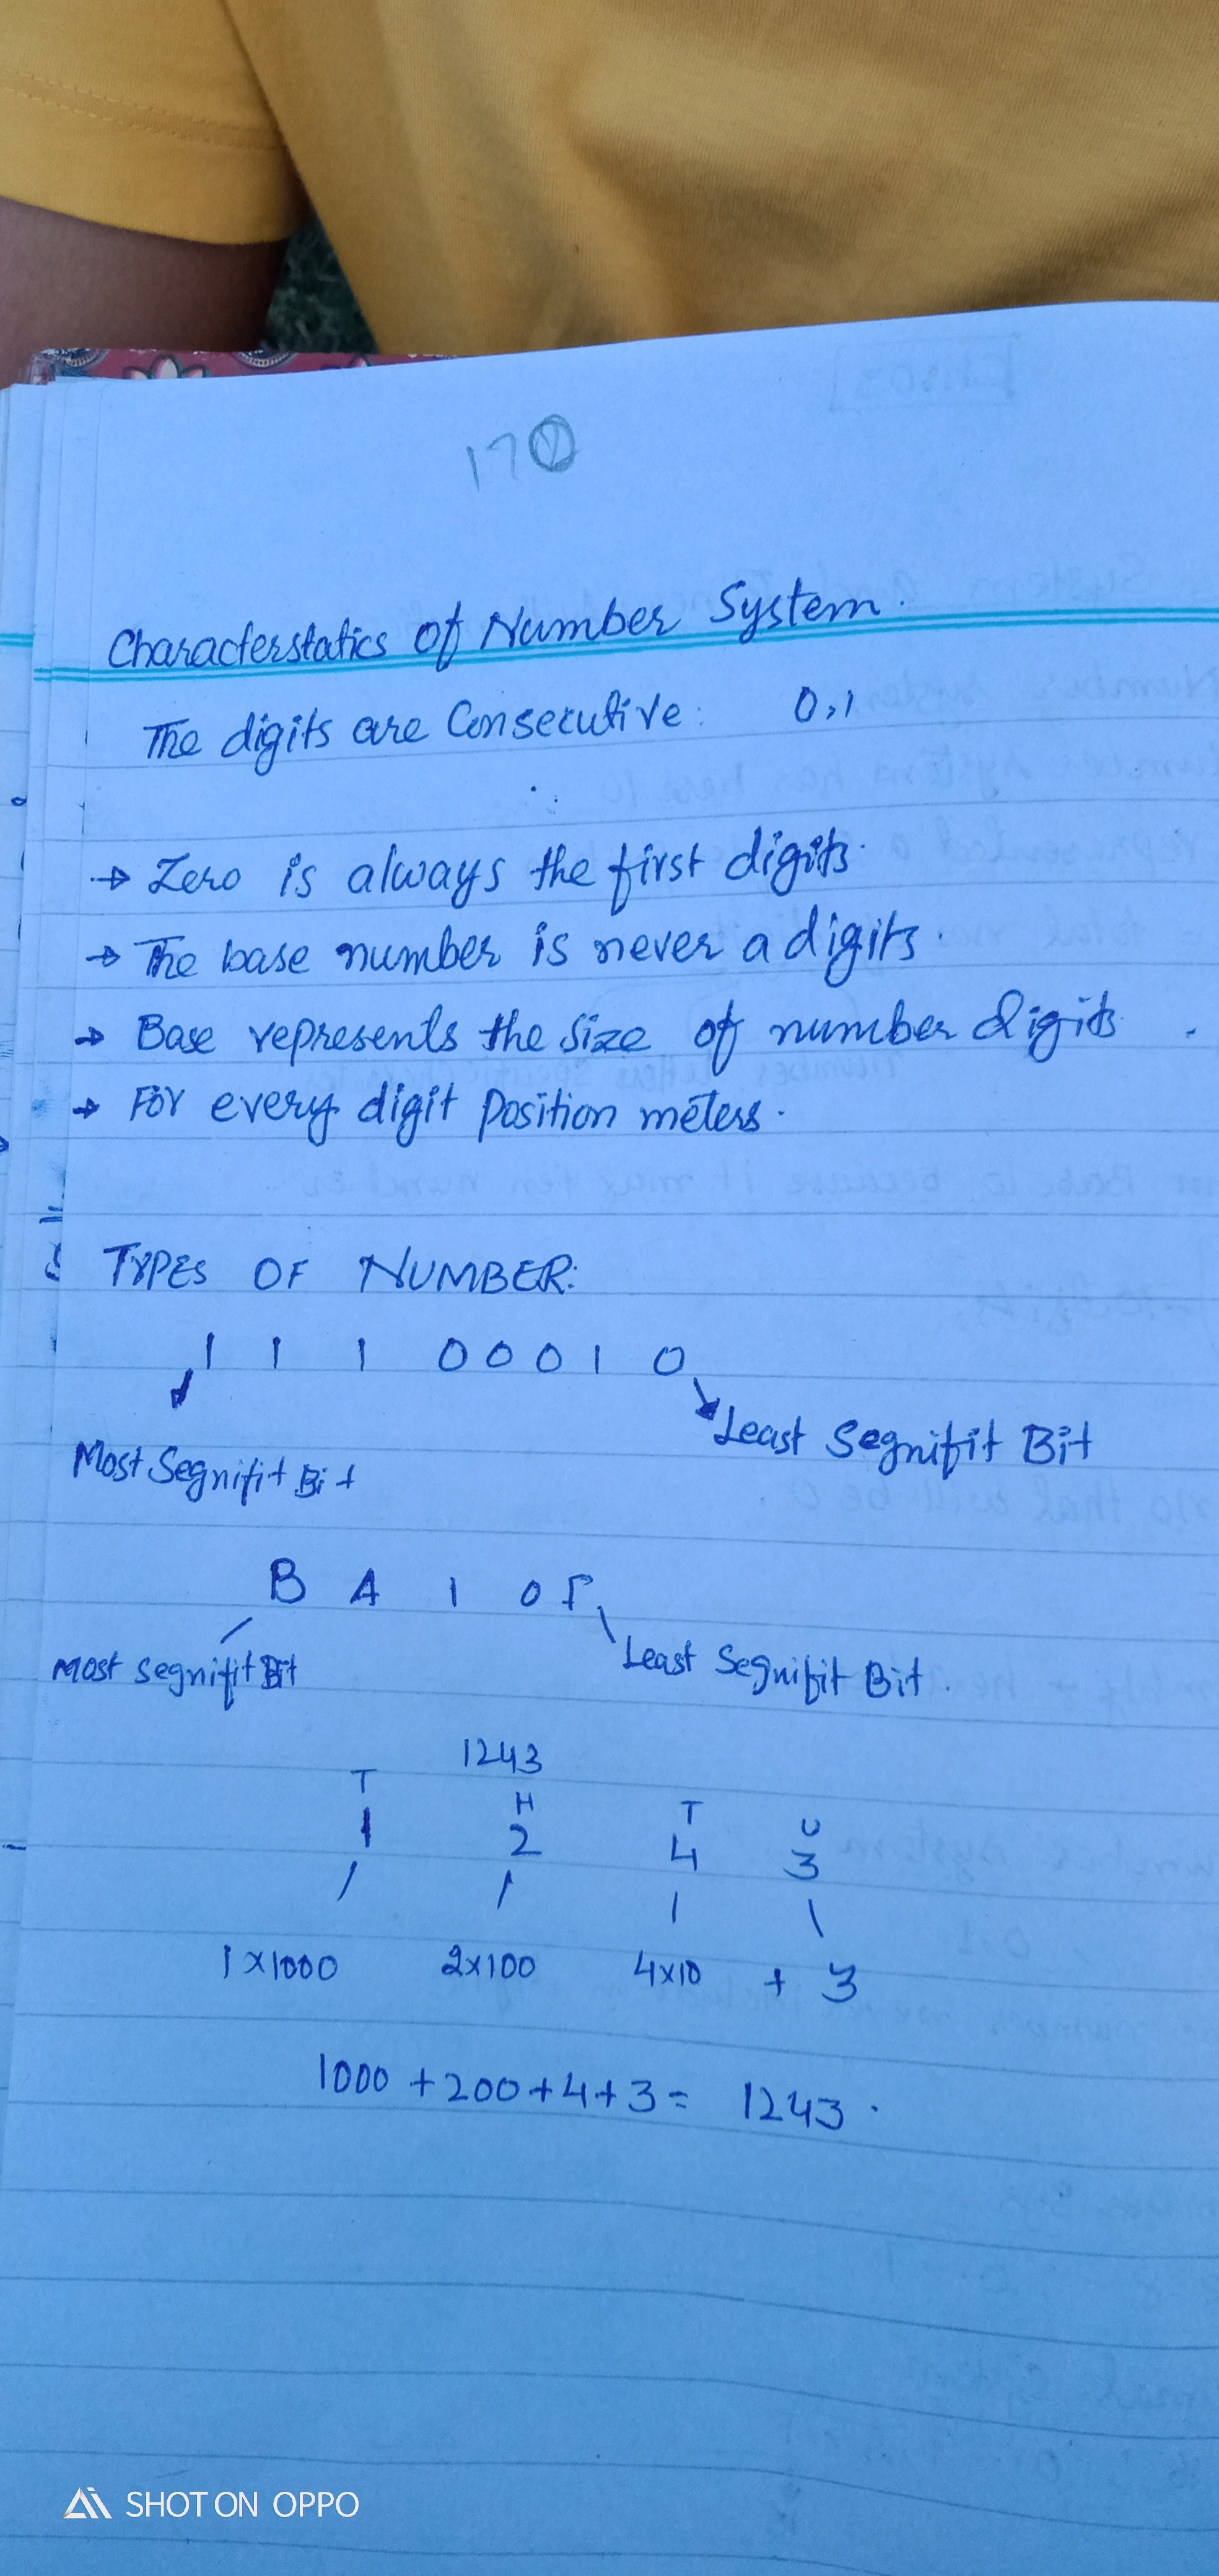 170
Characterstatics of Number System.
The digits are Consecutive: 0,1
→ Zero is always the first digits.
→ The base number is never a digits.
→ Base represents the size of number digits.
→ For every digit position meters.
TYPES OF NUMBER:
1 1 1 0 0 0 1 0
Least Segnifit Bit
Most Segnifit Bit
B A 1 0 F
Least Segnifit Bit.
Most segnifit Bit
1243
T H T U
1 2 4 3
1×1000 2×100 4×10 + 3
1000 + 200 + 4 + 3 = 1243.
SHOT ON OPPO